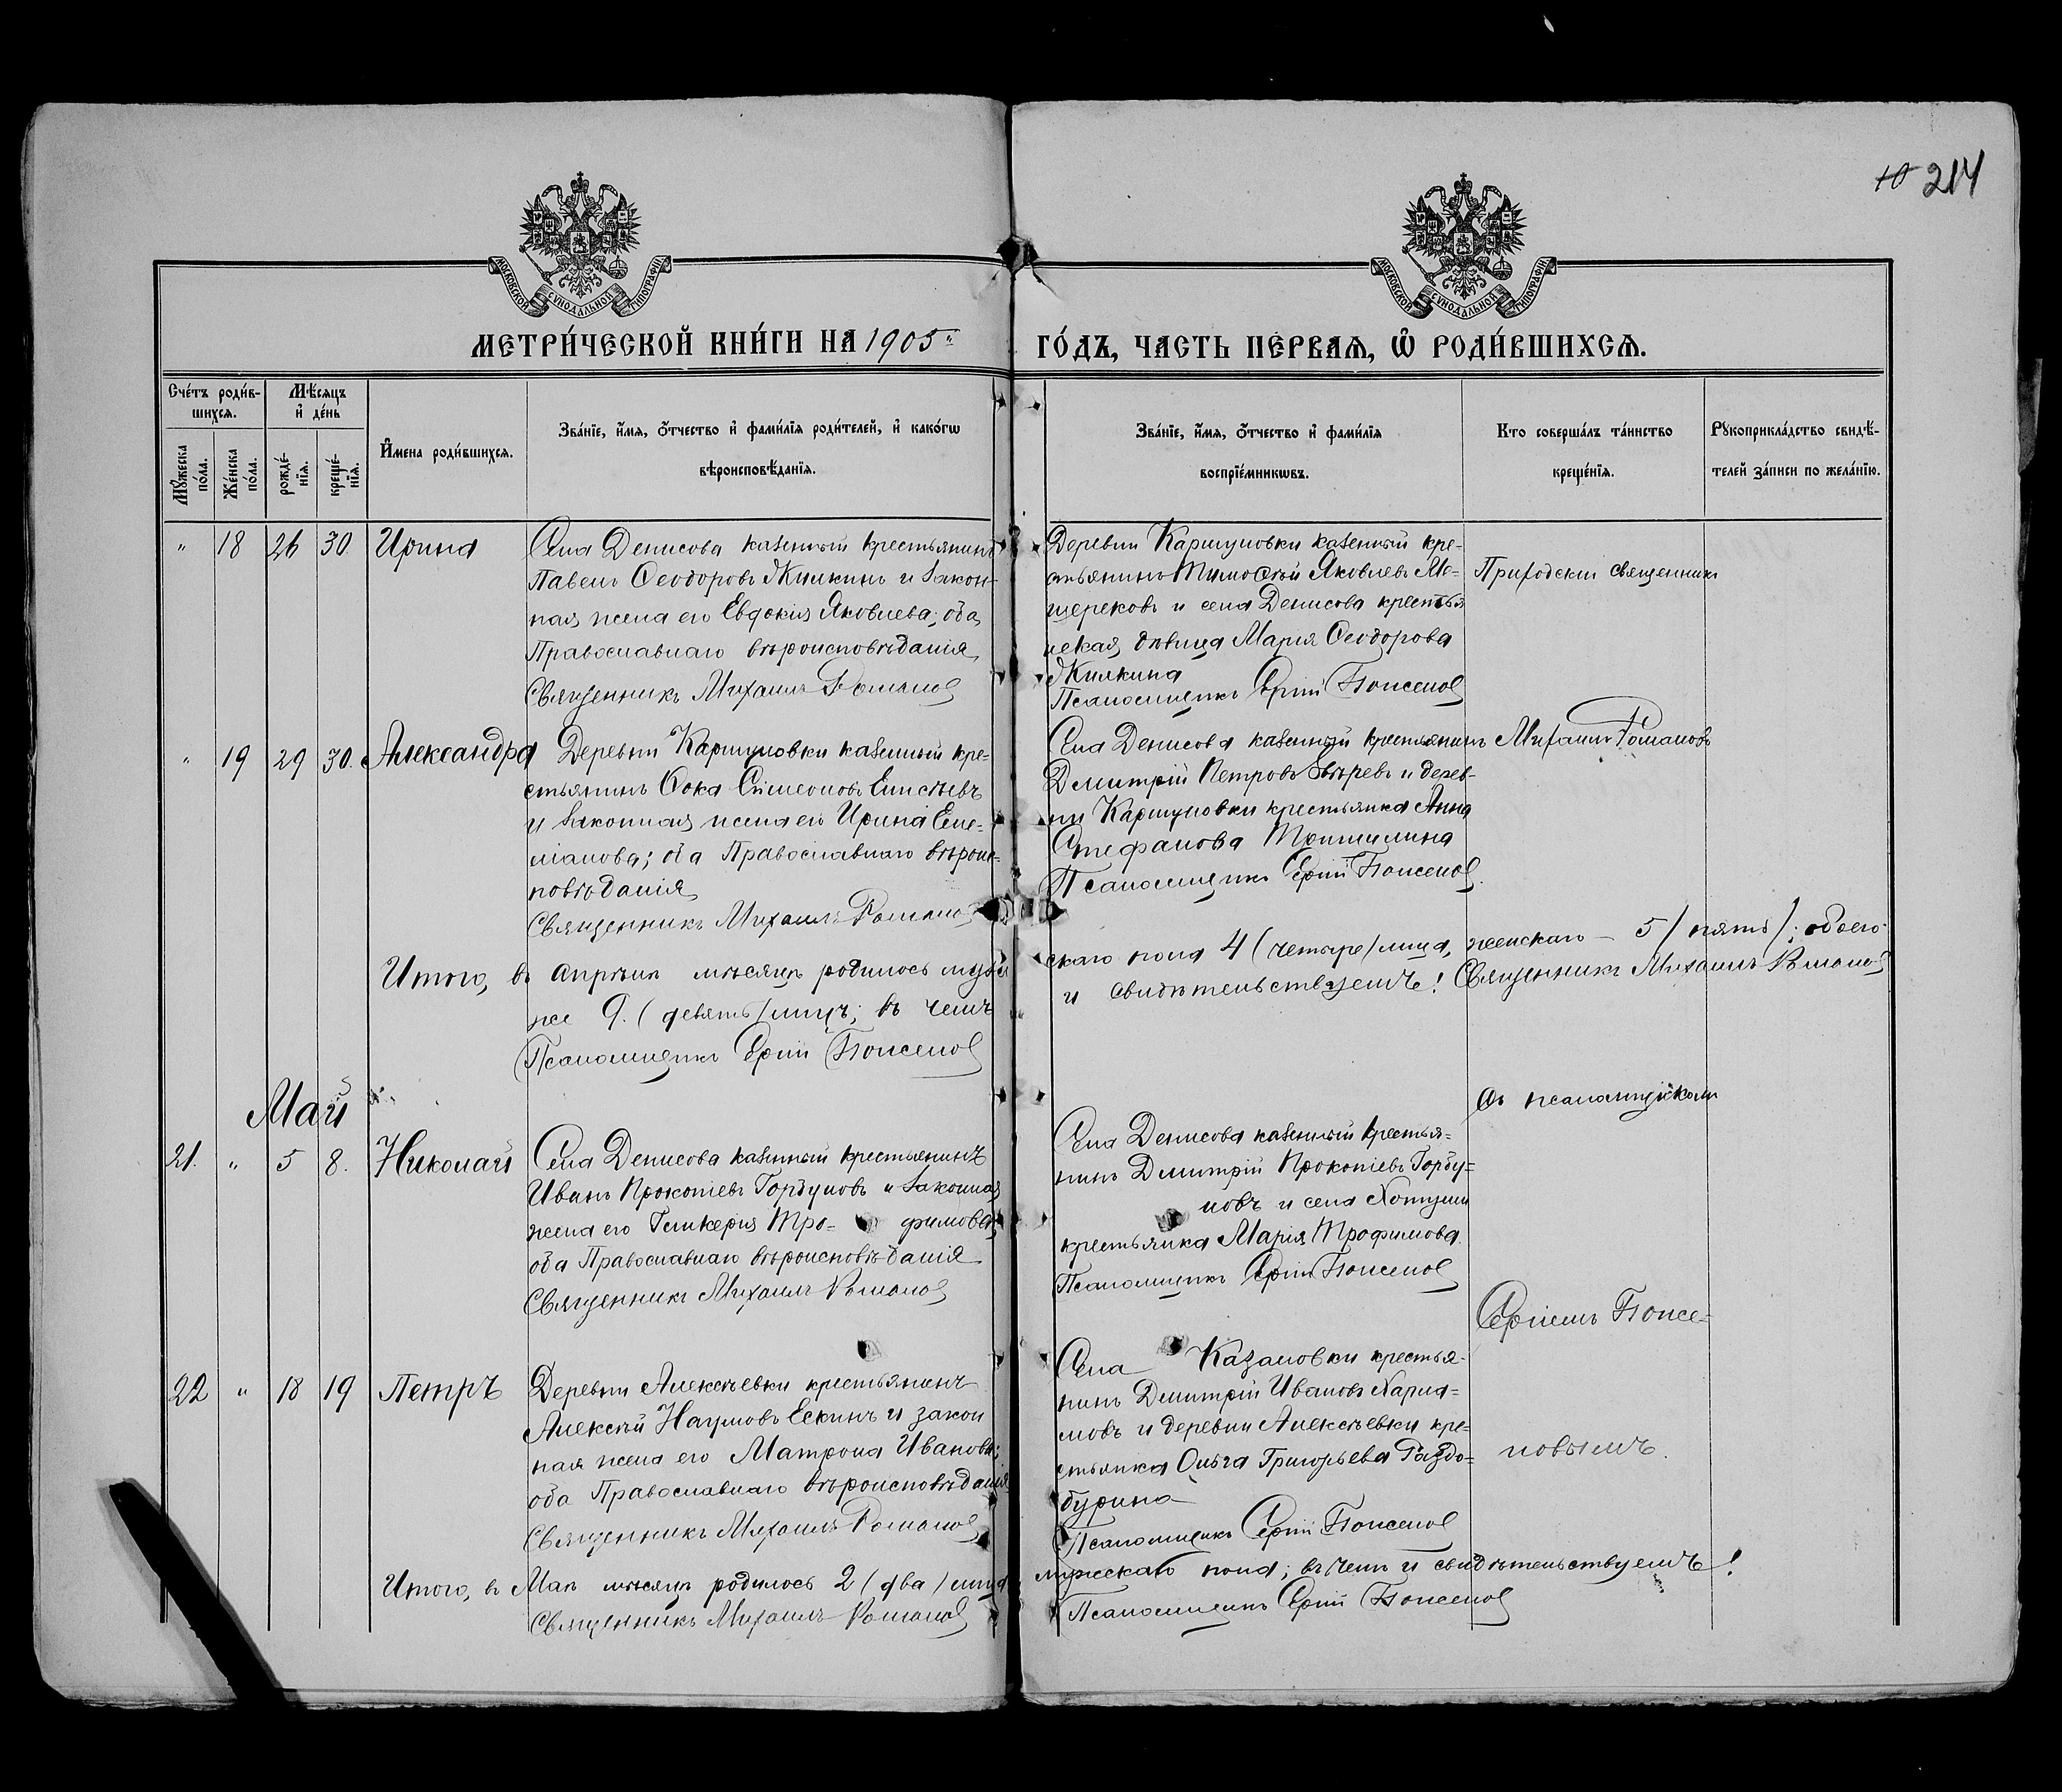 10 214
МОСКОВСКОЙ СѴНОДАЛЬНОЙ ТИПОГРАФІИ
МОСКОВСКОЙ СѴНОДАЛЬНОЙ ТИПОГРАФІИ
МЕТРИ́ЧЕСКОЙ КНИ́ГИ НА 1905 й
ГО́ДЪ, ЧАСТЬ ПЕ́РВАѦ, Ѡ҆ РОДИ́ВШИХСѦ.
Сче́тъ роди́в-
шихсѧ.
Мѣ́сѧцъ
и҆ де́нь
Мꙋ́жеска
по́ла.
Же́нска
по́ла.
рожде́-
нїѧ.
креще́-
нїѧ.
И҆мена роди́вшихсѧ.
Зва́нїе, и҆́мѧ, ѻ҆́тчество и҆ фами́лїѧ роди́телей, и҆ како́гѡ
вѣроисповѣ́данїѧ.
Зва́нїе, и҆́мѧ, ѻ҆́тчество и҆ фами́лїѧ
воспрїе́мникѡвъ.
Кто соверша́лъ та́инство
креще́нїѧ.
Рꙋкоприкла́дство свидѣ́-
телей за́писи по жела́нїю.
" 18 26 30 Ирина
Села Денисова казенный крестьянинъ
Павелъ Ѳеодоровъ Жилкинъ и закон-
ная жена его Евдокія Яковлева; оба
Православнаго вѣроисповѣданія
Священникъ Михаилъ Романов
Деревни Каршуновки казенный кре-
стьянинъ Тимоѳей Яковлевъ
и села Денисова крестья
нская дѣвица Марія Ѳеодорова
Жилкина
Псаломщикъ Сергій
Приходскій священникъ
" 19 29 30. Александра
Деревни Каршуновки казенный кре-
стьянинъ Ѳока Сѵмеоновъ Елисѣевъ
и законная жена его Ирина Еме-
ліанова; оба Православнаго вѣроис-
повѣданія
Священникъ Михаилъ Романов
Села Денисова казенный крестьянинъ
Дмитрій Петровъ Звѣревъ и дерев-
ни Каршуновки крестьянка Анна
Стефанова
Псаломщикъ Сергій
Михаилъ Романовъ
Итого, въ Апрѣлѣ мѣсяцѣ родилось муже
скаго пола 4 (четыре) лица, женскаго — 5 (пять); обоего
же 9. (девять) лицъ; въ чемъ
и свидѣтельствуемъ! Священникъ Михаилъ Романов
Псаломщикъ Сергій
Май
съ псаломщикомъ
21. " 5 8. Николай
Села Денисова казенный крестьянинъ
Иванъ Прокопіевъ Горбуновъ и законная
жена его Гликерія Тро- фимова,
оба Православнаго вѣроисповѣданія
Священникъ Михаилъ Романов
Села Денисова казенный крестья-
нинъ Дмитрій Прокопіевъ Горбу-
новъ и села Хотуши
крестьянка Марія Трофимова.
Псаломщикъ Сергій
Сергіемъ
22 " 18 19 Петръ
Деревни Алексѣевки крестьянинъ
Алексѣй Наумовъ Ескинъ и закон
ная жена его Матрона Иванова;
оба Православнаго вѣроисповѣданія
Священникъ Михаилъ Романов
Села Казановки крестья-
нинъ Дмитрій Ивановъ Харла-
мовъ и деревни Алексѣевки кре-
стьянка Ольга Григорьева Раздо-
бурина
Псаломщикъ Сергій
новымъ.
Итого, въ Маѣ мѣсяцѣ родилось 2 (два) лица
мужскаго пола; въ чемъ и свидѣтельствуемъ!
Священникъ Михаилъ Романов
Псаломщикъ Сергій